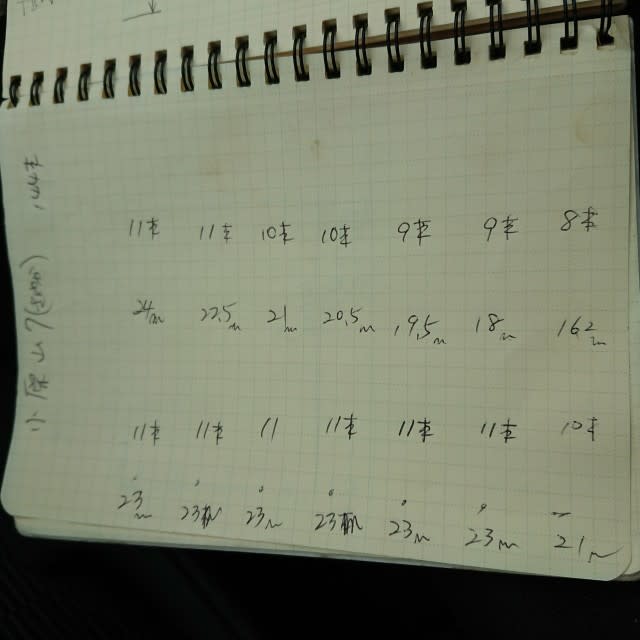 11本 11本 10本 10本 9本 9本 8本
24m 22.5m 21m 20.5m 19.5m 18m 16.2m
11本 11本 11 11本 11本 11本 10本
23m 23m 23m 23m 23m 23m 21m
144本